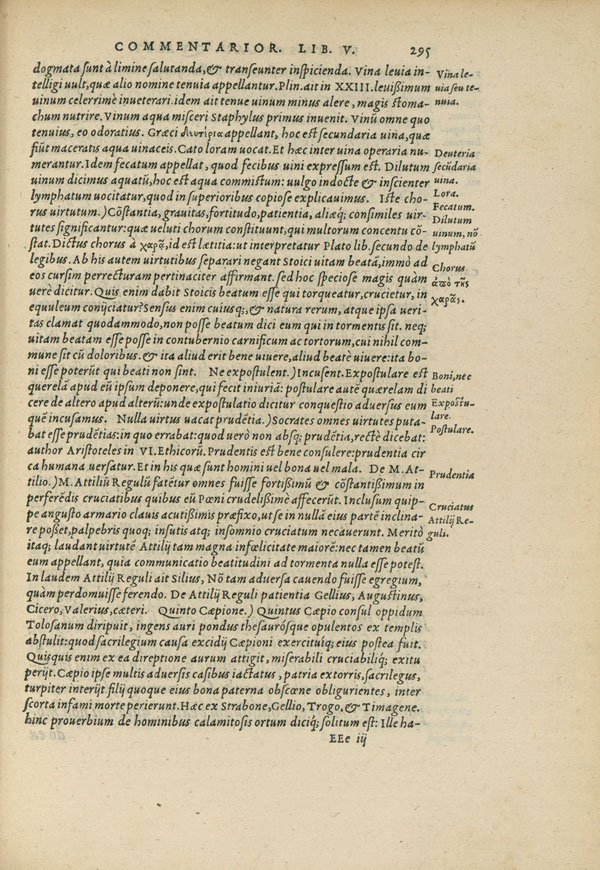 COMMENTARIOR. LIB. V. 295
dogmata sunt à limine salutanda, & transeunter inspicienda. Vina leuia in-
telligi uult, quæ alio nomine tenuia appellantur. Plin. ait in XXIII. leuißimum
uinum celerrimè inueterari. idem ait tenue uinum minus alere, magis stoma-
chum nutrire. Vinum aqua misceri Staphylus primus inuenit. Vinū omne quo
tenuius, eo odoratius. Græci appellant, hoc est secundaria uina, quæ
fiūt maceratis aqua uinaceis. Cato loram uocat. Et hæc inter uina operaria nu-
merantur. Idem fecatum appellat, quod fecibus uini expressum est. Dilutum
uinum dicimus aquatū, hoc est aqua commistum: uulgo indocte & inscienter
lymphatum uocitatur, quod in superioribus copiose explicauimus. Iste cho-
rus uirtutum.) Cōstantia, grauitas, fortitudo, patientia, aliæq; consimiles uir-
tutes significantur: quæ ueluti chorum constituunt, qui multorum concentu cō-
stat. Dictus chorus à χαρᾶ, id est lætitia: ut interpretatur Plato lib. secundo de
legibus. Ab his autem uirtutibus separari negant Stoici uitam beatā, immò ad
eos cursim perrecturam pertinaciter affirmant. sed hoc speciose magis quàm
uerè dicitur. Quis enim dabit Stoicis beatum esse qui torqueatur, crucietur, in
equuleum conijciatur? Sensus enim cuiusq;, & natura rerum, atque ipsa ueri-
tas clamat quodammodo, non posse beatum dici eum qui in tormentis sit. neq;
uitam beatam esse posse in contubernio carnificum ac tortorum, cui nihil com-
mune sit cū doloribus. & ita aliud erit bene uiuere, aliud beatè uiuere: ita bo-
ni esse poterūt qui beati non sint. Ne expostulent.) Incusent. Expostulare est
querelā apud eū ipsum deponere, qui fecit iniuriā: postulare autē quærelam di
cere de altero apud alterū: unde expostulatio dicitur conquestio aduersus eum
quē incusamus. Nulla uirtus uacat prudētia.) Socrates omnes uirtutes puta-
bat esse prudētias: in quo errabat: quod uerò non absq; prudētia, rectè dicebat:
author Aristoteles in VI. Ethicorū. Prudentis est bene consulere: prudentia cir
ca humana uersatur. Et in his quæ sunt homini uel bona uel mala. De M. At-
tilio.) M. Attiliū Regulū fatētur omnes fuisse fortißimū & cōstātißimum in
perferēdis cruciatibus quibus eū Pœni crudelißimè affecerūt. Inclusum quip-
pe angusto armario clauis acutißimis præfixo, ut se in nullā eius partē inclina-
re poßet, palpebris quoq; insutis atq; insomnio cruciatum necauerunt. Meritò
itaq; laudant uirtutē Attilij tam magna infœlicitate maiorē: nec tamen beatū
eum appellant, quia communicatio beatitudini ad tormenta nulla esse potest.
In laudem Attilij Reguli ait Silius, Nō tam aduersa cauendo fuisse egregium,
quàm perdomuisse ferendo. De Attilij Reguli patientia Gellius, Augustinus,
Cicero, Valerius, cæteri. Quinto Cæpione.) Quintus Cæpio consul oppidum
Tolosanum diripuit, ingens auri pondus thesaurósque opulentos ex templis
abstulit: quod sacrilegium causa excidij Cæpioni exercituiq; eius postea fuit.
Quisquis enim ex ea direptione aurum attigit, miserabili cruciabiliq; exitu
perijt. Cæpio ipse multis aduersis casibus iactatus, patria extorris, sacrilegus,
turpiter interijt. filij quoque eius bona paterna obscœne obligurientes, inter
scorta infami morte perierunt. Hæc ex Strabone, Gellio, Trogo, & Timagene.
hinc prouerbium de hominibus calamitosis ortum diciq; solitum est: Ille ha-
EEe iij
Vina le-
uia seu te-
nuia.
Deuteria
secūdaria
uina.
Lora.
Fecatum.
Dilutum
uinum, nō
lymphatū
Chorus
ἀπὸ τῆς
χαρᾶς.
Boni, nec
beati
Expostu-
lare.
Postulare.
Prudentia
Cruciatus
Attilij Re-
guli.